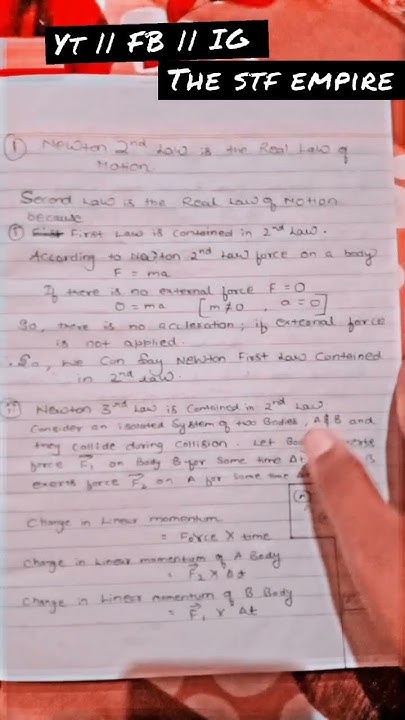 YT || FB || IG
THE STF EMPIRE
① Newton 2nd Law is the Real Law of
Motion.
Second Law is the Real Law of Motion
because
(i) First Law is Contained in 2nd Law.
According to Newton 2nd Law force on a body
F = ma
If there is no external force F = 0
0 = ma [m ≠ 0, a = 0]
So, there is no accleration; if external force
is not applied.
So, we can say Newton First Law Contained
in 2nd Law.
(ii) Newton 3rd Law is Contained in 2nd Law
Consider an isolated System of two Bodies, A & B and
they collide during collision. Let
force F⃗₁ on Body B for some time Δt B
exerts force F⃗₂ on A for some time
Change in Linear momentum
= Force × time
Change in Linear momentum of A Body
= F⃗₂ × Δt
Change in Linear momentum of B Body
= F⃗₁ × Δt